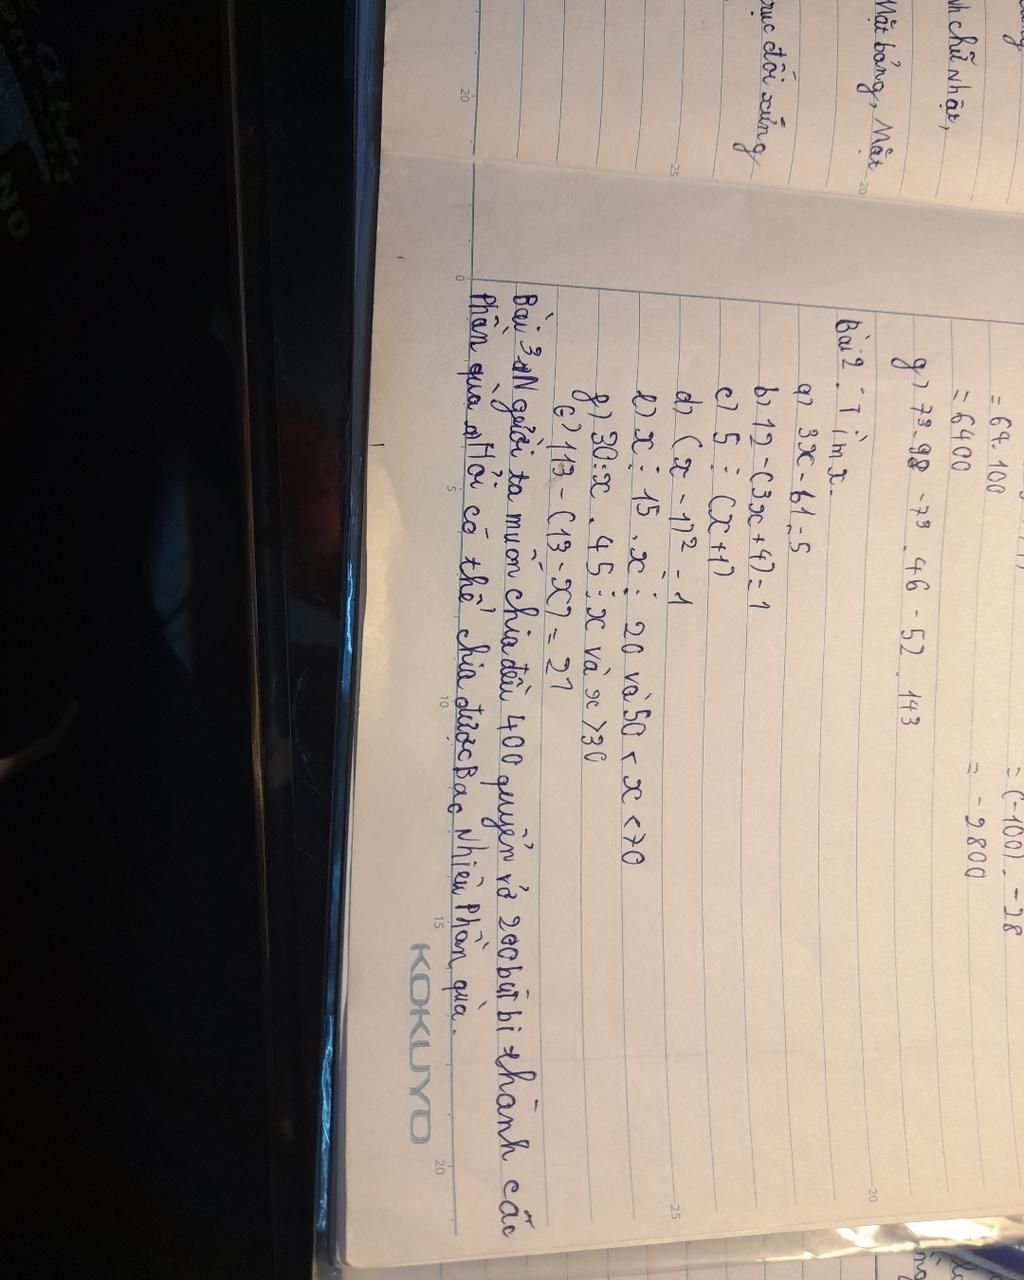 ung
nh chữ nhật,
Mặt bảng, Mặt
rục đối xứng
= 64. 100
= 6400
= (-100). -28
= -2800
g) 73. 98 - 73 . 46 - 52 . 143
Bài 2: Tìm x.
a) 3x - 61 = 5
b) 12 - (3x + 4) = 1
c) 5 ⋮ (x + 1)
d) (x - 1)² = 1
e) x ⋮ 15 . x ⋮ 20 và 50 < x < 70
g) 30 ⋮ x . 45 ⋮ x và x > 30
c) 113 - (13 - x) = 21
Bài 3: Người ta muốn chia đều 400 quyển vở 200 bút bi thành các
Phần quà. Hỏi có thể chia được Bao Nhiêu Phần quà.
KOKUYO
20
25
20
0
5
10
15
20
25
20